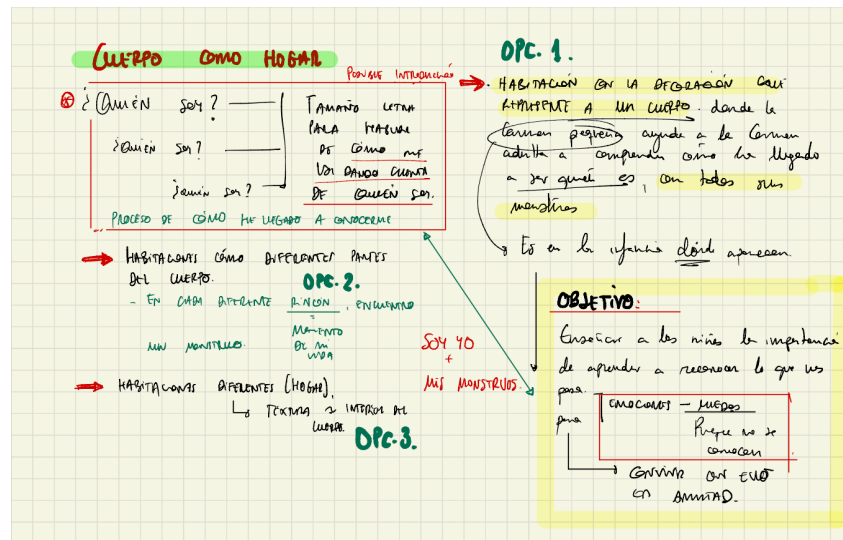 CUERPO COMO HOGAR
POSIBLE INTRODUCCIÓN
¿QUIÉN SOY?
¿QUIÉN SOY?
¿QUIÉN SOY?
TAMAÑO LETRA
PARA HABLAR
DE CÓMO ME
VOY DANDO CUENTA
DE QUIÉN SOY.
PROCESO DE CÓMO HE LLEGADO A CONOCERME
HABITACIONES CÓMO DIFERENTES PARTES
DEL CUERPO.
OPC. 2.
- EN CADA DIFERENTE RINCÓN, ENCUENTRO
=
MOMENTO
DE MI
VIDA
UN MONSTRUO.
HABITACIONES DIFERENTES (HOGAR),
TEXTURA INTERIOR DEL
CUERPO.
OPC. 3.
SOY YO
+
MIS MONSTRUOS.
OPC. 1.
HABITACIÓN EN LA DECORACIÓN QUE
A UN CUERPO. donde la
Carmen pequeña ayude a la Carmen
adulta a comprender cómo ha llegado
a ser quién es, con todos sus
monstruos
Es en la infancia dónde aparecen.
OBJETIVO:
Enseñar a los niños la importancia
de aprender a reconocer lo que nos
pasa.
para
EMOCIONES - MIEDOS
Porque no se
conocen
CONVIVIR CON ELLO
EN AMISTAD.